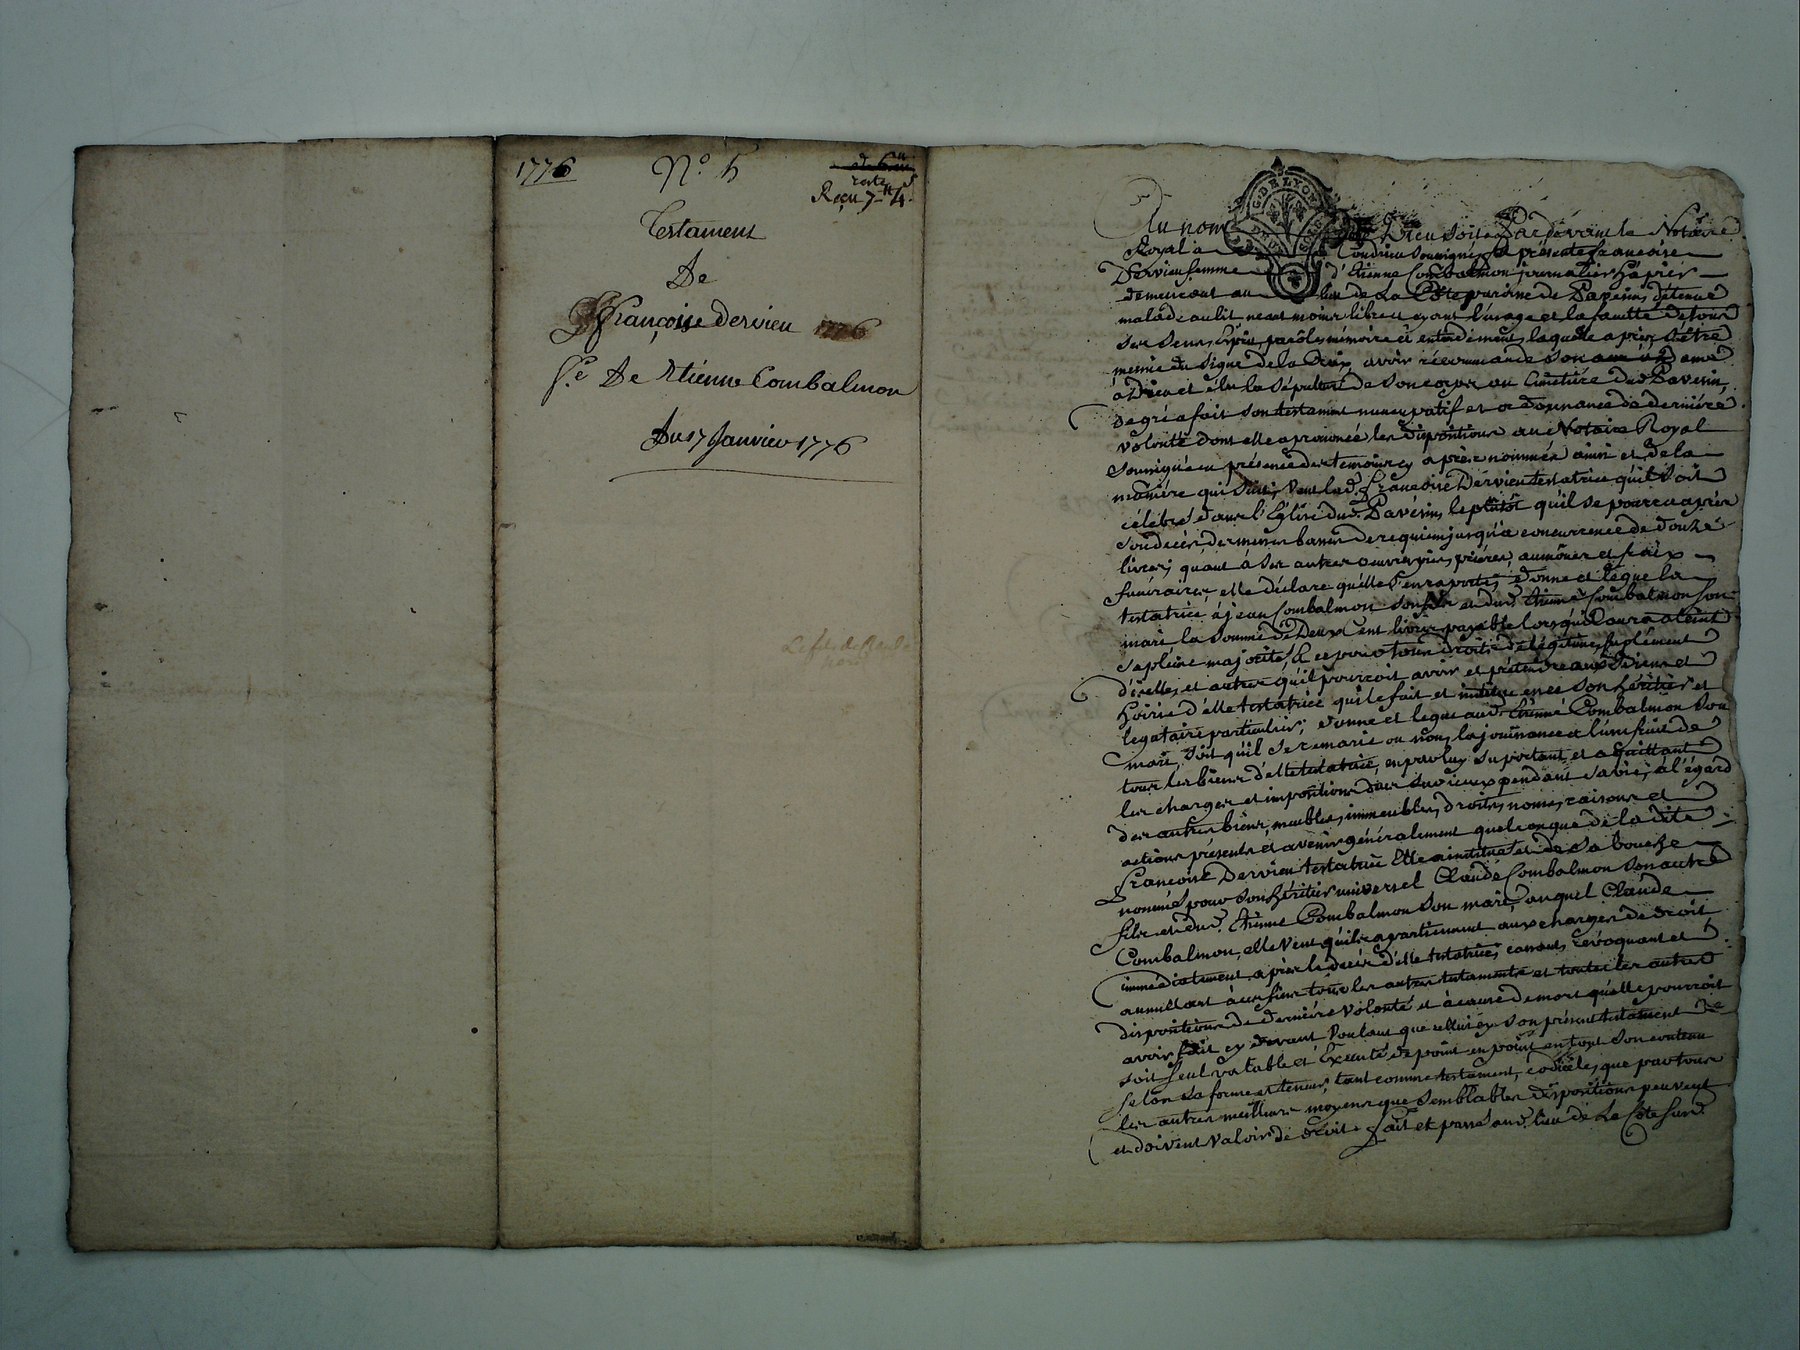 1776
N.º 5
reste
Reçu 7
Testament
De
Françoise dervieu 1776
f.e De Etienne Combalmon
Du 17 Janvier 1776
G. DE LYON
Au nom De Dieu soit. Pardevant le Notaire
Royal à Condrieu soussigné, a présente françoise
Dervieu femme d'Etienne Combalmon journalier
demeurant au lieu de La Côte paroisse de Pavesin, détenue
malade au lit neantmoins libre et ayant l'usage et la faculté de tous
ses sens, esprit, parôle, mémoire et entendement, laquelle après s'être
munie du signe de la Croix, avoir récommandé son ame
à Dieu et élu la sépulture de son corps au Cimetière dud. Pavesin,
de gré a fait son testament nuncupatif et ordonnance de derniére
volonté dont elle a prononcé les dispositions au Notaire Royal
soussigné en présence des témoins cy après nommés ainsi et de la
maniére qui suit; Veut lad. françoise Dervieu testatrice qu'il soit
célébré dans l'Eglise dud. Pavésin, le plûtôt qu'il se pourra après
son decès, des messes basses de requiem jusqu'à concurrence de douze
livres; quant à ses autres œuvres pies, priéres, aumônes et fraix
funéraires, elle déclare qu'elle s'en raporte, donne et légue la
testatrice à jean Combalmon son fils et dud. Etienne Combalmon son
mari la somme de Deux Cent livres payable lorsqu'il aura atteint
sa pleine majorité, & ce pour tous droits de légitime, suplément
d'icelle, et autres qu'il pourroit avoir et prétendre aux biens et
hoirie d'elle testatrice qui le fait et institue en ce son héritier et
legataire particulier; donne et legue aud. Etienne Combalmon son
mari, soit qu'il se remarie ou non, la jouissance et l'usufruit de
tous les biens d'elle testatrice, en par luy suportant et aquittant
les charges et impositions dues sur iceux pendant sa vie; à l'égard
des autres biens, meubles, immeubles, droits, noms, raisons et
actions présents et avenir généralement quelconque de la dite
françoise Dervieu testatrice Elle a institué et de sa bouche
nommé pour son héritier universel Claude Combalmon son autre
fils et dud. Etienne Combalmon son mari, auquel Claude
Combalmon, elle veut qu'ils apartiennent aux charges de droit
immédiatement après le decès d'elle testatrice, cassant, révoquant et
annullant à ces fins tous les autres testaments et toutes les autres
dispositions de derniére volonté et à cause de mort qu'elle pourroit
avoir fait cy devant voulant que celluicy son présent testament
soit seul valable et Executé de point en point en tout son contenu
selon sa forme et teneur, tant comme testament, codicile, que par tous
les autres meilleurs moyens que semblables dispositions peuvent
et doivent valoir de droit. fait et passé aud. lieu de La Côte susd.